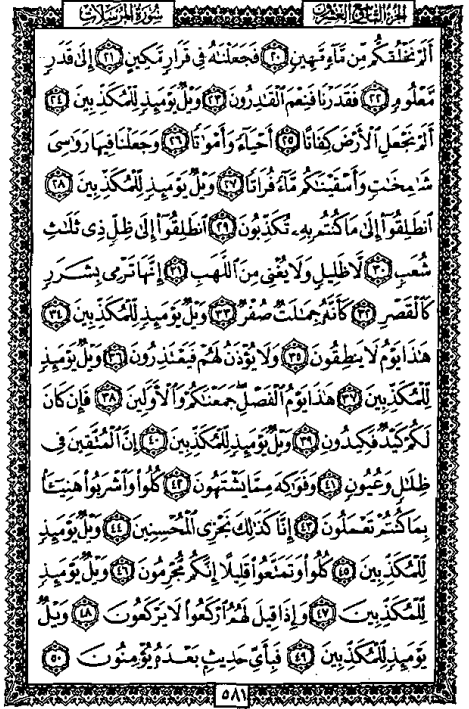 الجُزءُ التَّاسِعُ وَالعِشْرُونَ سُورَةُ المُرْسَلَاتِ
أَلَمْ نَخْلُقكُّم مِّن مَّآءٍ مَّهِينٍ ٢٠ فَجَعَلْنَٰهُ فِى قَرَارٍ مَّكِينٍ ٢١ إِلَىٰ قَدَرٍ
مَّعْلُومٍ ٢٢ فَقَدَرْنَا فَنِعْمَ ٱلْقَٰدِرُونَ ٢٣ وَيْلٌ يَوْمَئِذٍ لِّلْمُكَذِّبِينَ ٢٤
أَلَمْ نَجْعَلِ ٱلْأَرْضَ كِفَاتًا ٢٥ أَحْيَآءً وَأَمْوَٰتًا ٢٦ وَجَعَلْنَا فِيهَا رَوَٰسِىَ
شَٰمِخَٰتٍ وَأَسْقَيْنَٰكُم مَّآءً فُرَاتًا ٢٧ وَيْلٌ يَوْمَئِذٍ لِّلْمُكَذِّبِينَ ٢٨
ٱنطَلِقُوٓا۟ إِلَىٰ مَا كُنتُم بِهِۦ تُكَذِّبُونَ ٢٩ ٱنطَلِقُوٓا۟ إِلَىٰ ظِلٍّ ذِى ثَلَٰثِ
شُعَبٍ ٣٠ لَّا ظَلِيلٍ وَلَا يُغْنِى مِنَ ٱللَّهَبِ ٣١ إِنَّهَا تَرْمِى بِشَرَرٍ
كَٱلْقَصْرِ ٣٢ كَأَنَّهُۥ جِمَٰلَتٌ صُفْرٌ ٣٣ وَيْلٌ يَوْمَئِذٍ لِّلْمُكَذِّبِينَ ٣٤
هَٰذَا يَوْمُ لَا يَنطِقُونَ ٣٥ وَلَا يُؤْذَنُ لَهُمْ فَيَعْتَذِرُونَ ٣٦ وَيْلٌ يَوْمَئِذٍ
لِّلْمُكَذِّبِينَ ٣٧ هَٰذَا يَوْمُ ٱلْفَصْلِ ۖ جَمَعْنَٰكُمْ وَٱلْأَوَّلِينَ ٣٨ فَإِن كَانَ
لَكُمْ كَيْدٌ فَكِيدُونِ ٣٩ وَيْلٌ يَوْمَئِذٍ لِّلْمُكَذِّبِينَ ٤٠ إِنَّ ٱلْمُتَّقِينَ فِى
ظِلَٰلٍ وَعُيُونٍ ٤١ وَفَوَٰكِهَ مِمَّا يَشْتَهُونَ ٤٢ كُلُوا۟ وَٱشْرَبُوا۟ هَنِيٓـًٔا
بِمَا كُنتُمْ تَعْمَلُونَ ٤٣ إِنَّا كَذَٰلِكَ نَجْزِى ٱلْمُحْسِنِينَ ٤٤ وَيْلٌ يَوْمَئِذٍ
لِّلْمُكَذِّبِينَ ٤٥ كُلُوا۟ وَتَمَتَّعُوا۟ قَلِيلًا إِنَّكُم مُّجْرِمُونَ ٤٦ وَيْلٌ يَوْمَئِذٍ
لِّلْمُكَذِّبِينَ ٤٧ وَإِذَا قِيلَ لَهُمُ ٱرْكَعُوا۟ لَا يَرْكَعُونَ ٤٨ وَيْلٌ
يَوْمَئِذٍ لِّلْمُكَذِّبِينَ ٤٩ فَبِأَىِّ حَدِيثٍۭ بَعْدَهُۥ يُؤْمِنُونَ ٥٠
٥٨١